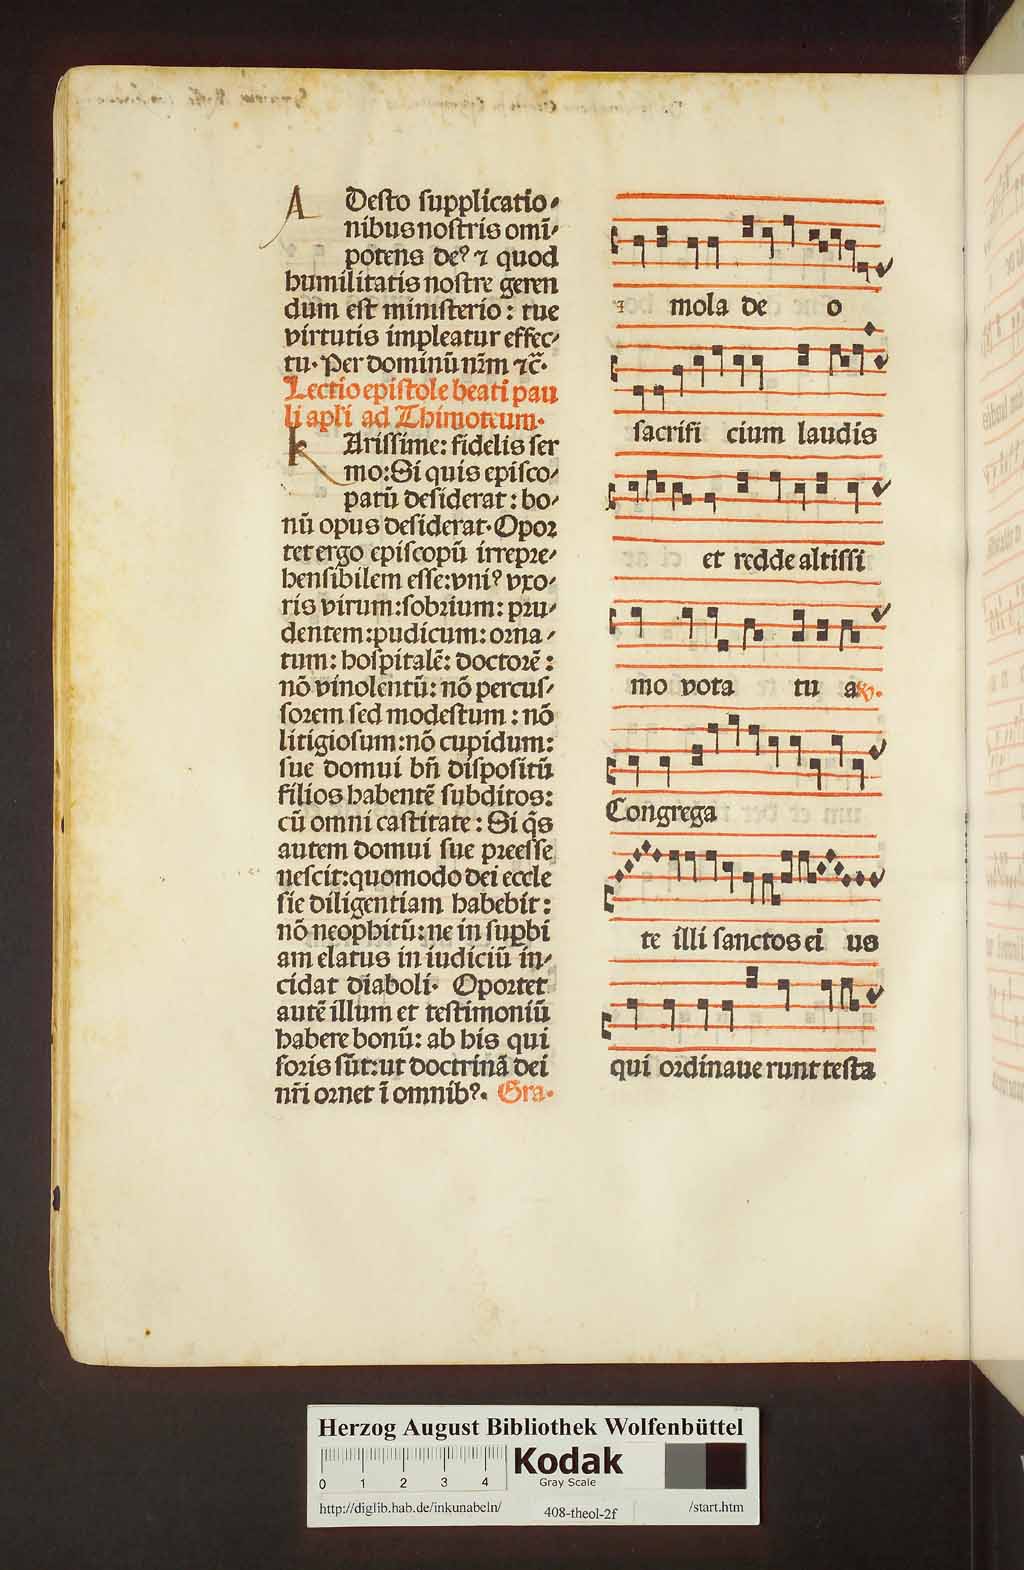 A Desto supplicatio⸗
nibus nostris omi⸗
potens deꝰ ⁊ quod
humilitatis nostre geren
dum est ministerio: tue
virtutis impleatur effec⸗
tu. Per dominū nr̄m ⁊c̄.
Lectio epistole beati pau
li apli ad Thimoteum.
k Arissime: fidelis ser
mo: Si quis episco⸗
patū desiderat: bo⸗
nū opus desiderat. Opor
tet ergo episcopū irrepre⸗
hensibilem esse: vniꝰ vxo⸗
ris virum: sobrium: pru⸗
dentem: pudicum: orna⸗
tum: hospitalē: doctorē:
nō vinolentū: nō percus⸗
sorem sed modestum: nō
litigiosum: nō cupidum:
sue domui bn̄ dispositū
filios habentē subditos:
cū omni castitate: Si q̄s
autem domui sue preesse
nescit: quomodo dei eccle
sie diligentiam habebit:
nō neophitū: ne in supbi
am elatus in iudiciū in⸗
cidat diaboli. Oportet
autē illum et testimoniū
habere bonū: ab his qui
foris sūt: ut doctrinā dei
nr̄i ornet ī omnibꝰ. Gra.
I mola de o
sacrifi cium laudis
et redde altissi
mo vota tu a ℣.
Congrega
te illi sanctos ei us
qui ordinaue runt testa
Herzog August Bibliothek Wolfenbüttel
Kodak
Gray Scale
0 1 2 3 4
http://diglib.hab.de/inkunabeln/ 408-theol-2f /start.htm